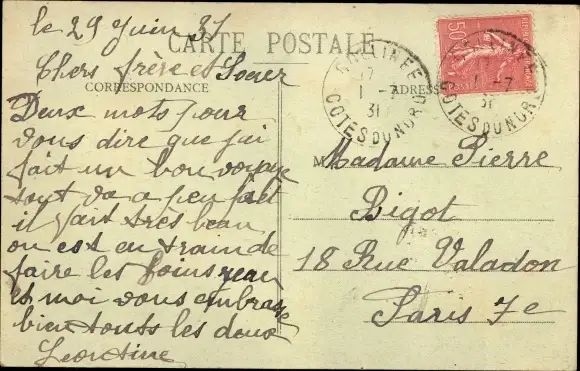 le 29 juin 31
CARTE POSTALE
Chers frère et Soeur
CORRESPONDANCE
Deux mots pour
vous dire que j'ai
fait un bon voyage
tout va a peu
il fait très beau
on est en train de
faire les foins
et moi vous embrasse
bien touts les deux
Leontine
50
COLLINEE
1-7
31
COTES DU NORD
1-7
31
COTES DU NORD
ADRESSE
M
Madame Pierre
Bigot
18 Rue Valadon
Paris 7e